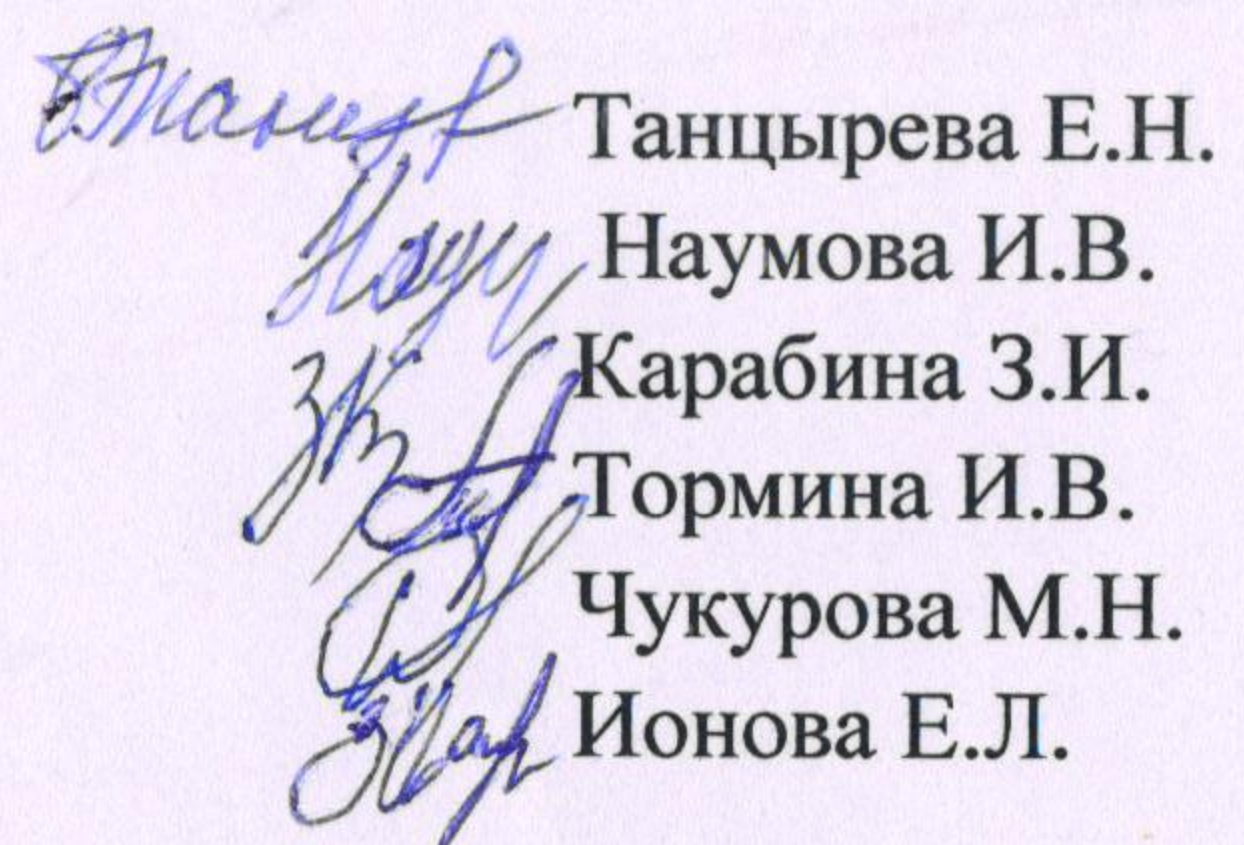 Танцырева Е.Н.
Наумова И.В.
Карабина З.И.
Тормина И.В.
Чукурова М.Н.
Ионова Е.Л.